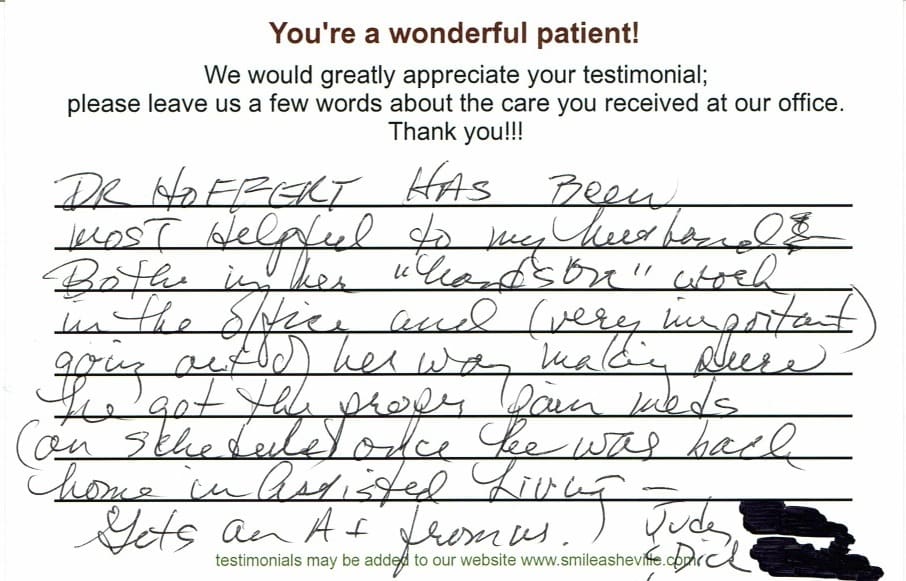 You're a wonderful patient!
We would greatly appreciate your testimonial;
please leave us a few words about the care you received at our office.
Thank you!!!
DR HOFFERT HAS Been
most Helpful to my husband
Bothe in her "hands on" work
in the office and (very important)
going out of her way making sure
he got the proper pain meds
(on schedule) once he was back
home in Assisted Living —
Gets an A+ from us. Judy
& Dick
testimonials may be added to our website www.smileasheville.com